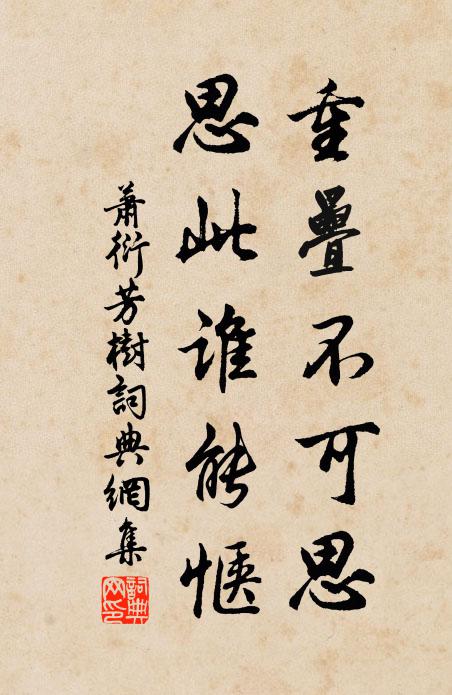 重疊不可思
思此誰能惬
蕭衍芳樹詞典網集
詞典